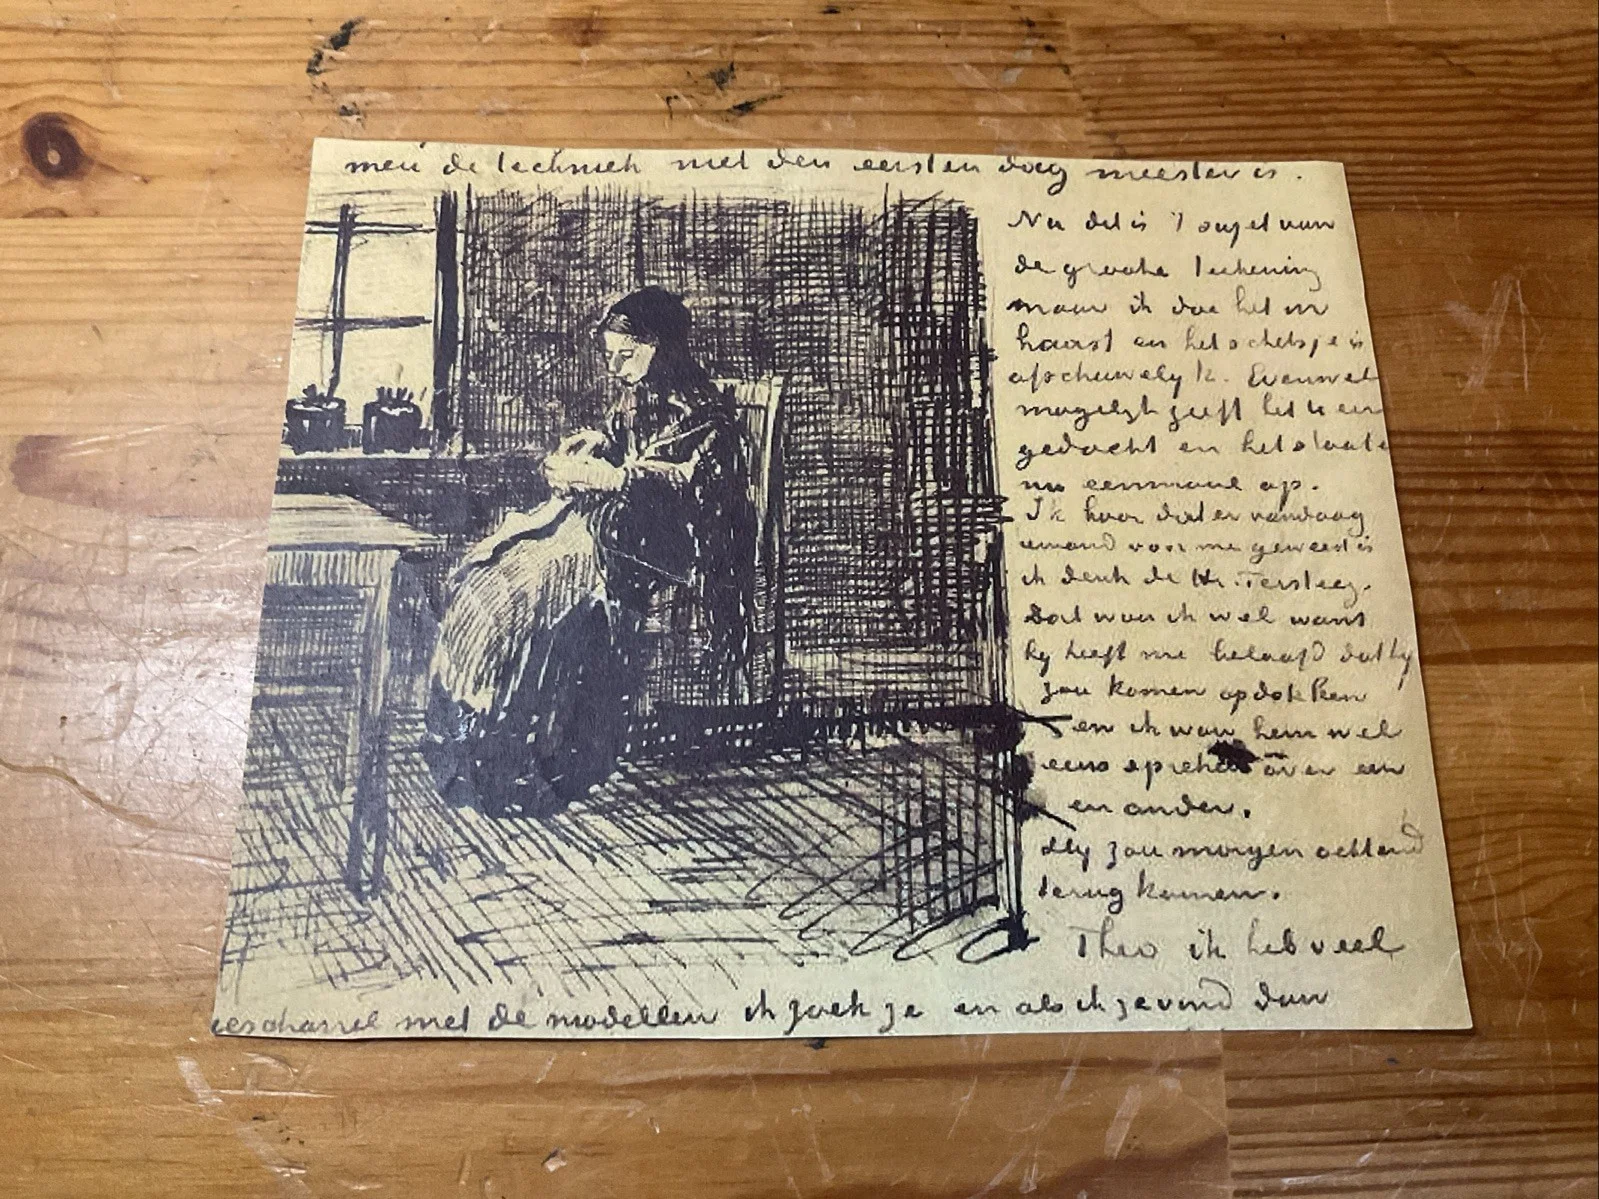 men de techniek niet den eersten dag meester is.
Nu dit is 't sujet van
de groote teekening
maar ik doe het in
haast en het schetsje is
afschuwelyk. Evenwel
mogelyk geeft het U een
gedacht en het staat
nu eenmaal op.
Ik hoor dat er vandaag
iemand voor me geweest is
ik denk de Hr. Tersteeg.
Dat wou ik wel want
hy heeft me beloofd dat hy
zou komen opdokken
en ik wou hem wel
eens spreken over een
en ander.
Hy zou morgen ochtend
terug komen.
Theo ik heb veel
gescharrel met de modellen ik zoek ze en als ik ze vind dan